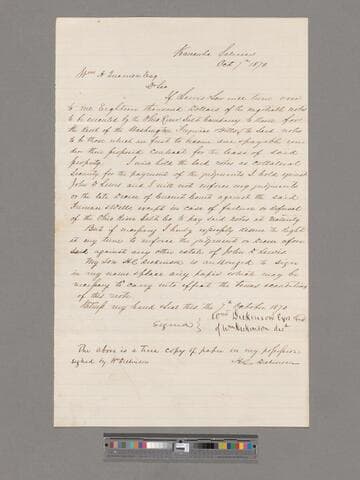 Kanawha Salines
Oct 7th 1870
Wm A Quarrier Esq
Dr Sir
If Lewis Law will turn over
to me Eighteen thousand Dollars of the negotiable notes
to be executed by the Ohio River Salt Company to them for
the Rent of the Washington Furnace &c, the said notes
to be those which are first to become due & payable un-
der their proposed Contract for the lease of said
property. I will hold the said notes as Collateral
Security for the payment of the judgments I hold against
John D Lewis and I will not enforce my judgments
or the late Decree of against the said
Furnace & Wells except in case of failure or refusal
of the Ohio River Salt Co to pay said notes at maturity
But if necessary I hereby expressly reserve the right
at any time to enforce the judgment or Decree afore-
said against any other estate of John D Lewis.
My Son H.C. Dickinson is authorized to sign
in my name & place any papers which may be
necessary to carry into effect the
of this note
Witness my hand & Seal this the 7th October 1870
Signed } Wm Dickinson
of Wm Dickinson decd
The above is a true copy of paper in my possession
signed by W Dickinson